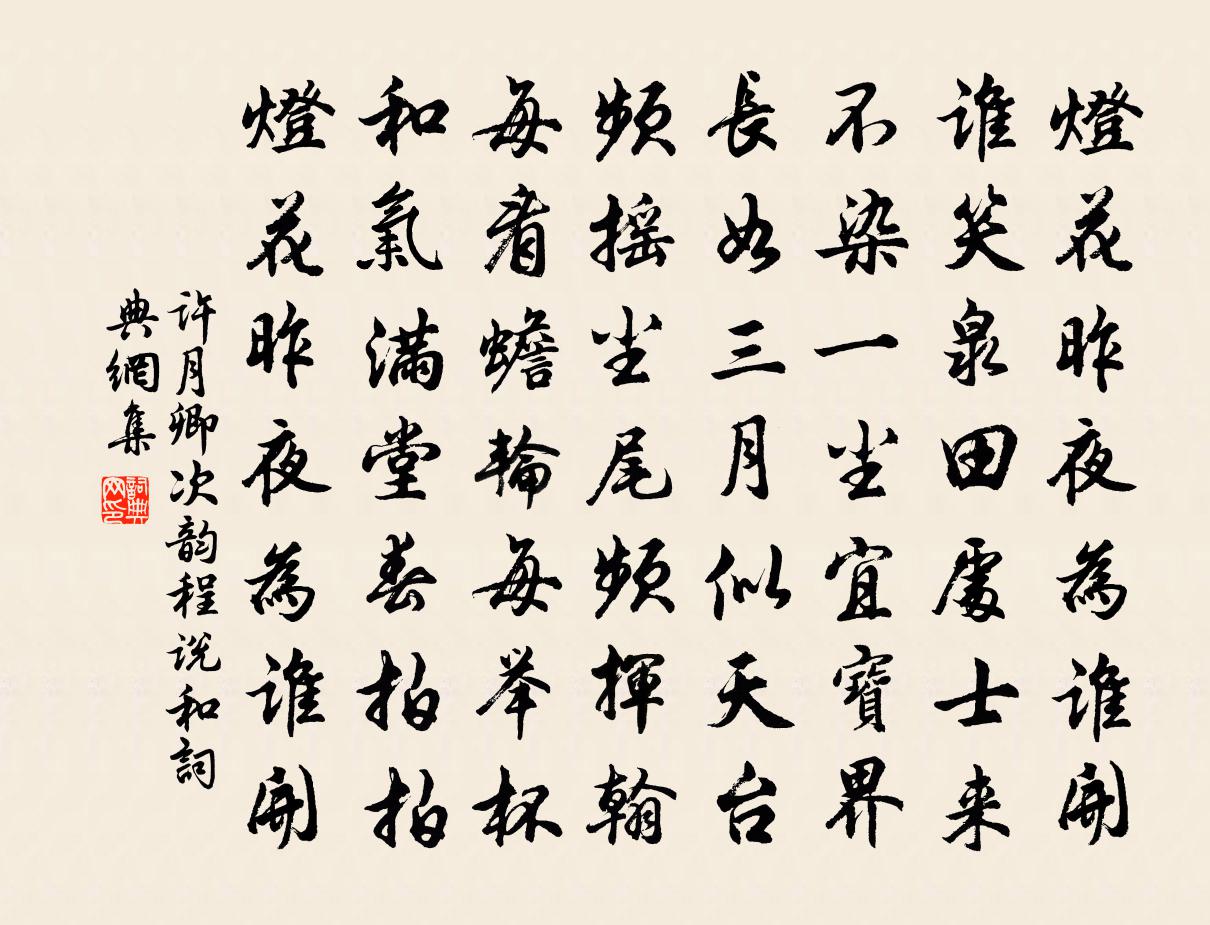 燈花昨夜為誰開
誰笑泉田處士来
不染一尘宜寶界
長如三月似天台
頻摇尘尾頻揮翰
每看蟾輪每举杯
和氣滿堂春拍拍
燈花昨夜為誰開
许月卿次韵程说和詞
典網集
詞典网印